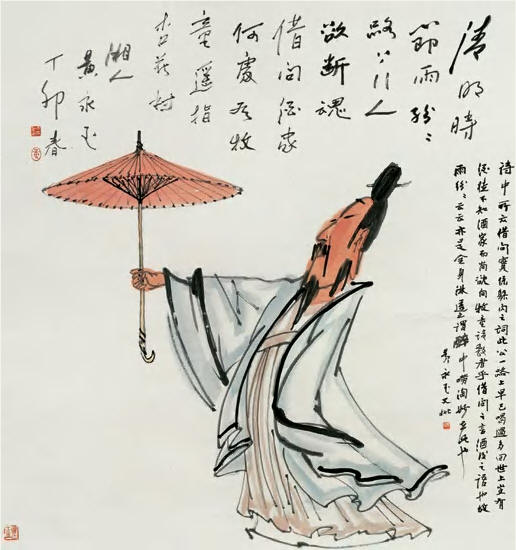 清明時
節雨紛々
路上行人
欲断魂
借問酒家
何處有牧
童遥指
杏花村
湘人
黄永玉
丁卯春
詩中所云借問實係之詞此公一路上早已喝過多回世上豈有
不知酒家而尚欲向牧童请教者乎借問之言酒後之語也故
雨紛々云云亦是全身淋透之謂醉中妙在此也
黄永玉又批